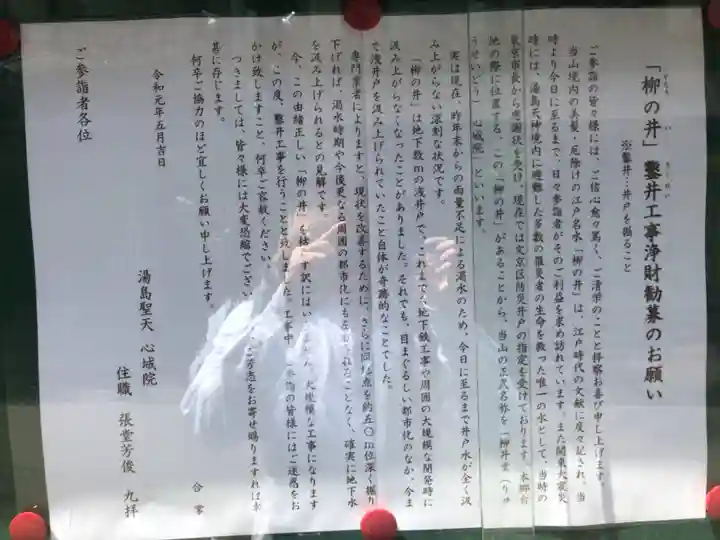 「柳の井」鑿井工事浄財勧募のお願い
※鑿井…井戸を掘ること
ご参詣の皆々様には、ご信心愈々篤く、ご清栄のことと拝察お喜び申し上げます。
当山境内の美髪・厄除けの江戸名水「柳の井」は、江戸時代の文献に度々記され、当
時より今日に至るまで、日々参詣者がそのご利益を求め訪れています。また関東大震災
時には、湯島天神境内に避難した多数の罹災者の生命を救った唯一の水として、当時の
東京市長から感謝状を受け、現在では文京区防災井戸の指定を受けております。本郷台
地の際に位置する、この「柳の井」があることから、当山の正式名称を「柳井堂（りゅ
うせいどう）心城院」といいます。
実は現在、昨年末からの雨量不足による渇水のため、今日に至るまで井戸水が全く汲
み上がらない深刻な状況です。
「柳の井」は地下数mの浅井戸で、これまでも地下鉄工事や周囲の大規模な開発時に
汲み上がらなくなったことがありました。それでも、目まぐるしい都市化のなか、今ま
で浅井戸を汲み上げられていたこと自体が奇跡的なことでした。
専門業者によりますと、現状を改善するために、さらに 点を約五〇m位深く掘り
下げれば、渇水時期や今後更なる周囲の都市化にも左右されることなく、確実に地下水
を汲み上げられるとの見解です。
今、この由緒正しい「柳の井」を枯 す訳にはい 、大規模な工事になります
が、この度、鑿井工事を行うことと致しました。工事中、ご参詣の皆様にはご迷惑をお
かけ致しますこと、何卒ご容赦ください。
つきましては、皆々様には大変恐縮でござい ご芳志をお寄せ賜りますれば幸
甚に存じます。
何卒ご協力のほど宜しくお願い申し上げます。
合掌
令和元年五月吉日
湯島聖天 心城院
住職 張堂芳俊 九拝
ご参詣者各位